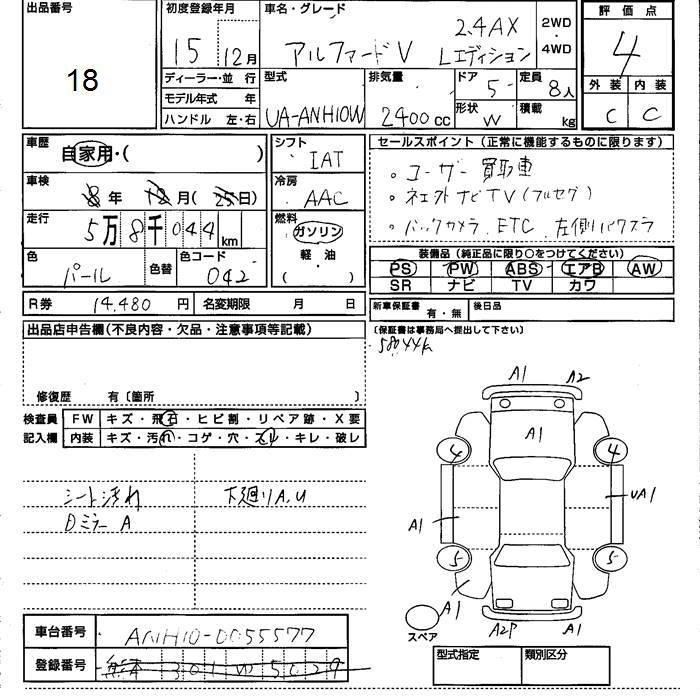 出品番号 初度登録年月 車名・グレード 評価点
18
15 12月 アルファードV 2.4AX Lエディション 2WD・4WD 4
ディーラー・並行 型式 排気量 ドア 定員 外装 内装
モデル年式 年 UA-ANH10W 2400cc 5 8人 C C
ハンドル 左・右 形状 W 積載 kg
車歴 自家用・( ) シフト IAT
セールスポイント(正常に機能するものに限ります)
。ユーザー買取車
車検 8年 12月(25日) 冷房 AAC
。ネェストナビTV(フルセグ)
走行 5万8千044km 燃料 ガソリン・軽油( )
。バックカメラ. ETC. 左側パワスラ
色 パール 色替 色コード 042
装備品(純正品に限り○をつけてください)
PS PW ABS エアB AW
SR ナビ TV カワ
R券 14.480円 名変期限 月 日
新車保証書 有・無 後日品
(保証書は事務局へ提出して下さい)
58044k
出品店申告欄(不良内容・欠品・注意事項等記載)
修復歴 有〔箇所 〕
検査員記入欄
FW キズ・飛石・ヒビ割・リペア跡・X要
内装 キズ・汚れ・コゲ・穴・スレ・キレ・破レ
シート汚れ 下廻りA.U
Dミラー A
A1 A2
A1
4 4
A1 UA1
5 5
A1
A2P A1
スペア
車台番号 ANH10-0055577
登録番号 熊本 301 W 5029
型式指定 類別区分